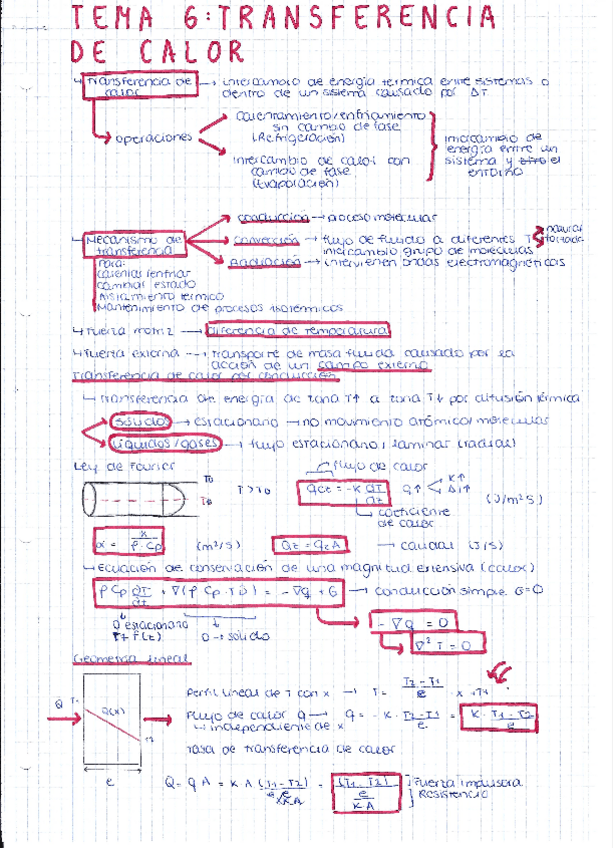 TEMA 6: TRANSFERENCIA
DE CALOR
↳ Transferencia de calor → intercambio de energía térmica entre sistemas o
dentro de un sistema causado por ΔT
operaciones
calentamiento/enfriamiento
sin cambio de fase
(Refrigeración)
intercambio de calor con
cambio de fase
(Evaporación)
intercambio de
energía entre un
sistema y el
entorno
↳ Mecanismo de
transferencia
conducción → proceso molecular
convección → flujo de fluido a diferentes T
natural
forzada
intercambio grupo de moléculas
Radiación → intervienen ondas electromagnéticas
Para:
calentar/enfriar
cambiar estado
Aislamiento térmico
Mantenimiento de procesos isotérmicos
↳ Fuerza motriz → diferencia de temperatura
↳ Fuerza externa → transporte de masa fluida causado por la
acción de un campo externo
Transferencia de calor por conducción
↳ transferencia de energía de zona T↑ a zona T↓ por difusión térmica
sólidos → estacionario → no movimiento atómico/molecular
líquidos/gases → flujo estacionario, laminar (radial)
Ley de Fourier
flujo de calor
T0
T > T0
qz = -K dT/dz
q↑ K↑ ΔT↑
(J/m²s)
coeficiente
de calor
α = K/ρ·Cp (m²/s)
Qz = qz A → caudal (J/s)
↳ Ecuación de conservación de una magnitud extensiva (calor)
ρ Cp dT/dt + ∇(ρ Cp · T v) = -∇q + G → conducción simple G=0
0 estacionario
T ≠ f(t)
0 → sólido
-∇q = 0
∇²T = 0
Geometría lineal
Q T1 q(x) T2
e
Perfil lineal de T con x → T = T2 - T1/e · x + T1
Flujo de calor q → q = -K · T2 - T1/e = K · T1 - T2/e
↳ independiente de x
Tasa de transferencia de calor
Q = q A = K A (T1 - T2)/e = (T1 - T2)/e/KA
Fuerza impulsora
Resistencia